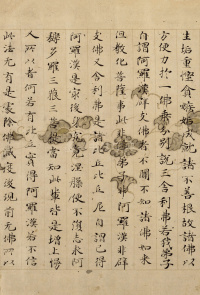 生垢重慳貪嫉妬成就諸不善根故諸佛以
方便力於一佛乘分別說三舍利弗若我弟子
自謂阿羅漢辟支佛者不聞不知諸佛如來
但教化菩薩事此非佛弟子非阿羅漢非辟
支佛又舍利弗是諸比丘比丘尼自謂已得
阿羅漢是最後身究竟涅槃便不復志求阿
耨多羅三藐三菩提當知此輩皆是增上慢
人所以者何若有比丘實得阿羅漢若不信
此法无有是處除佛滅度後現前无佛所以